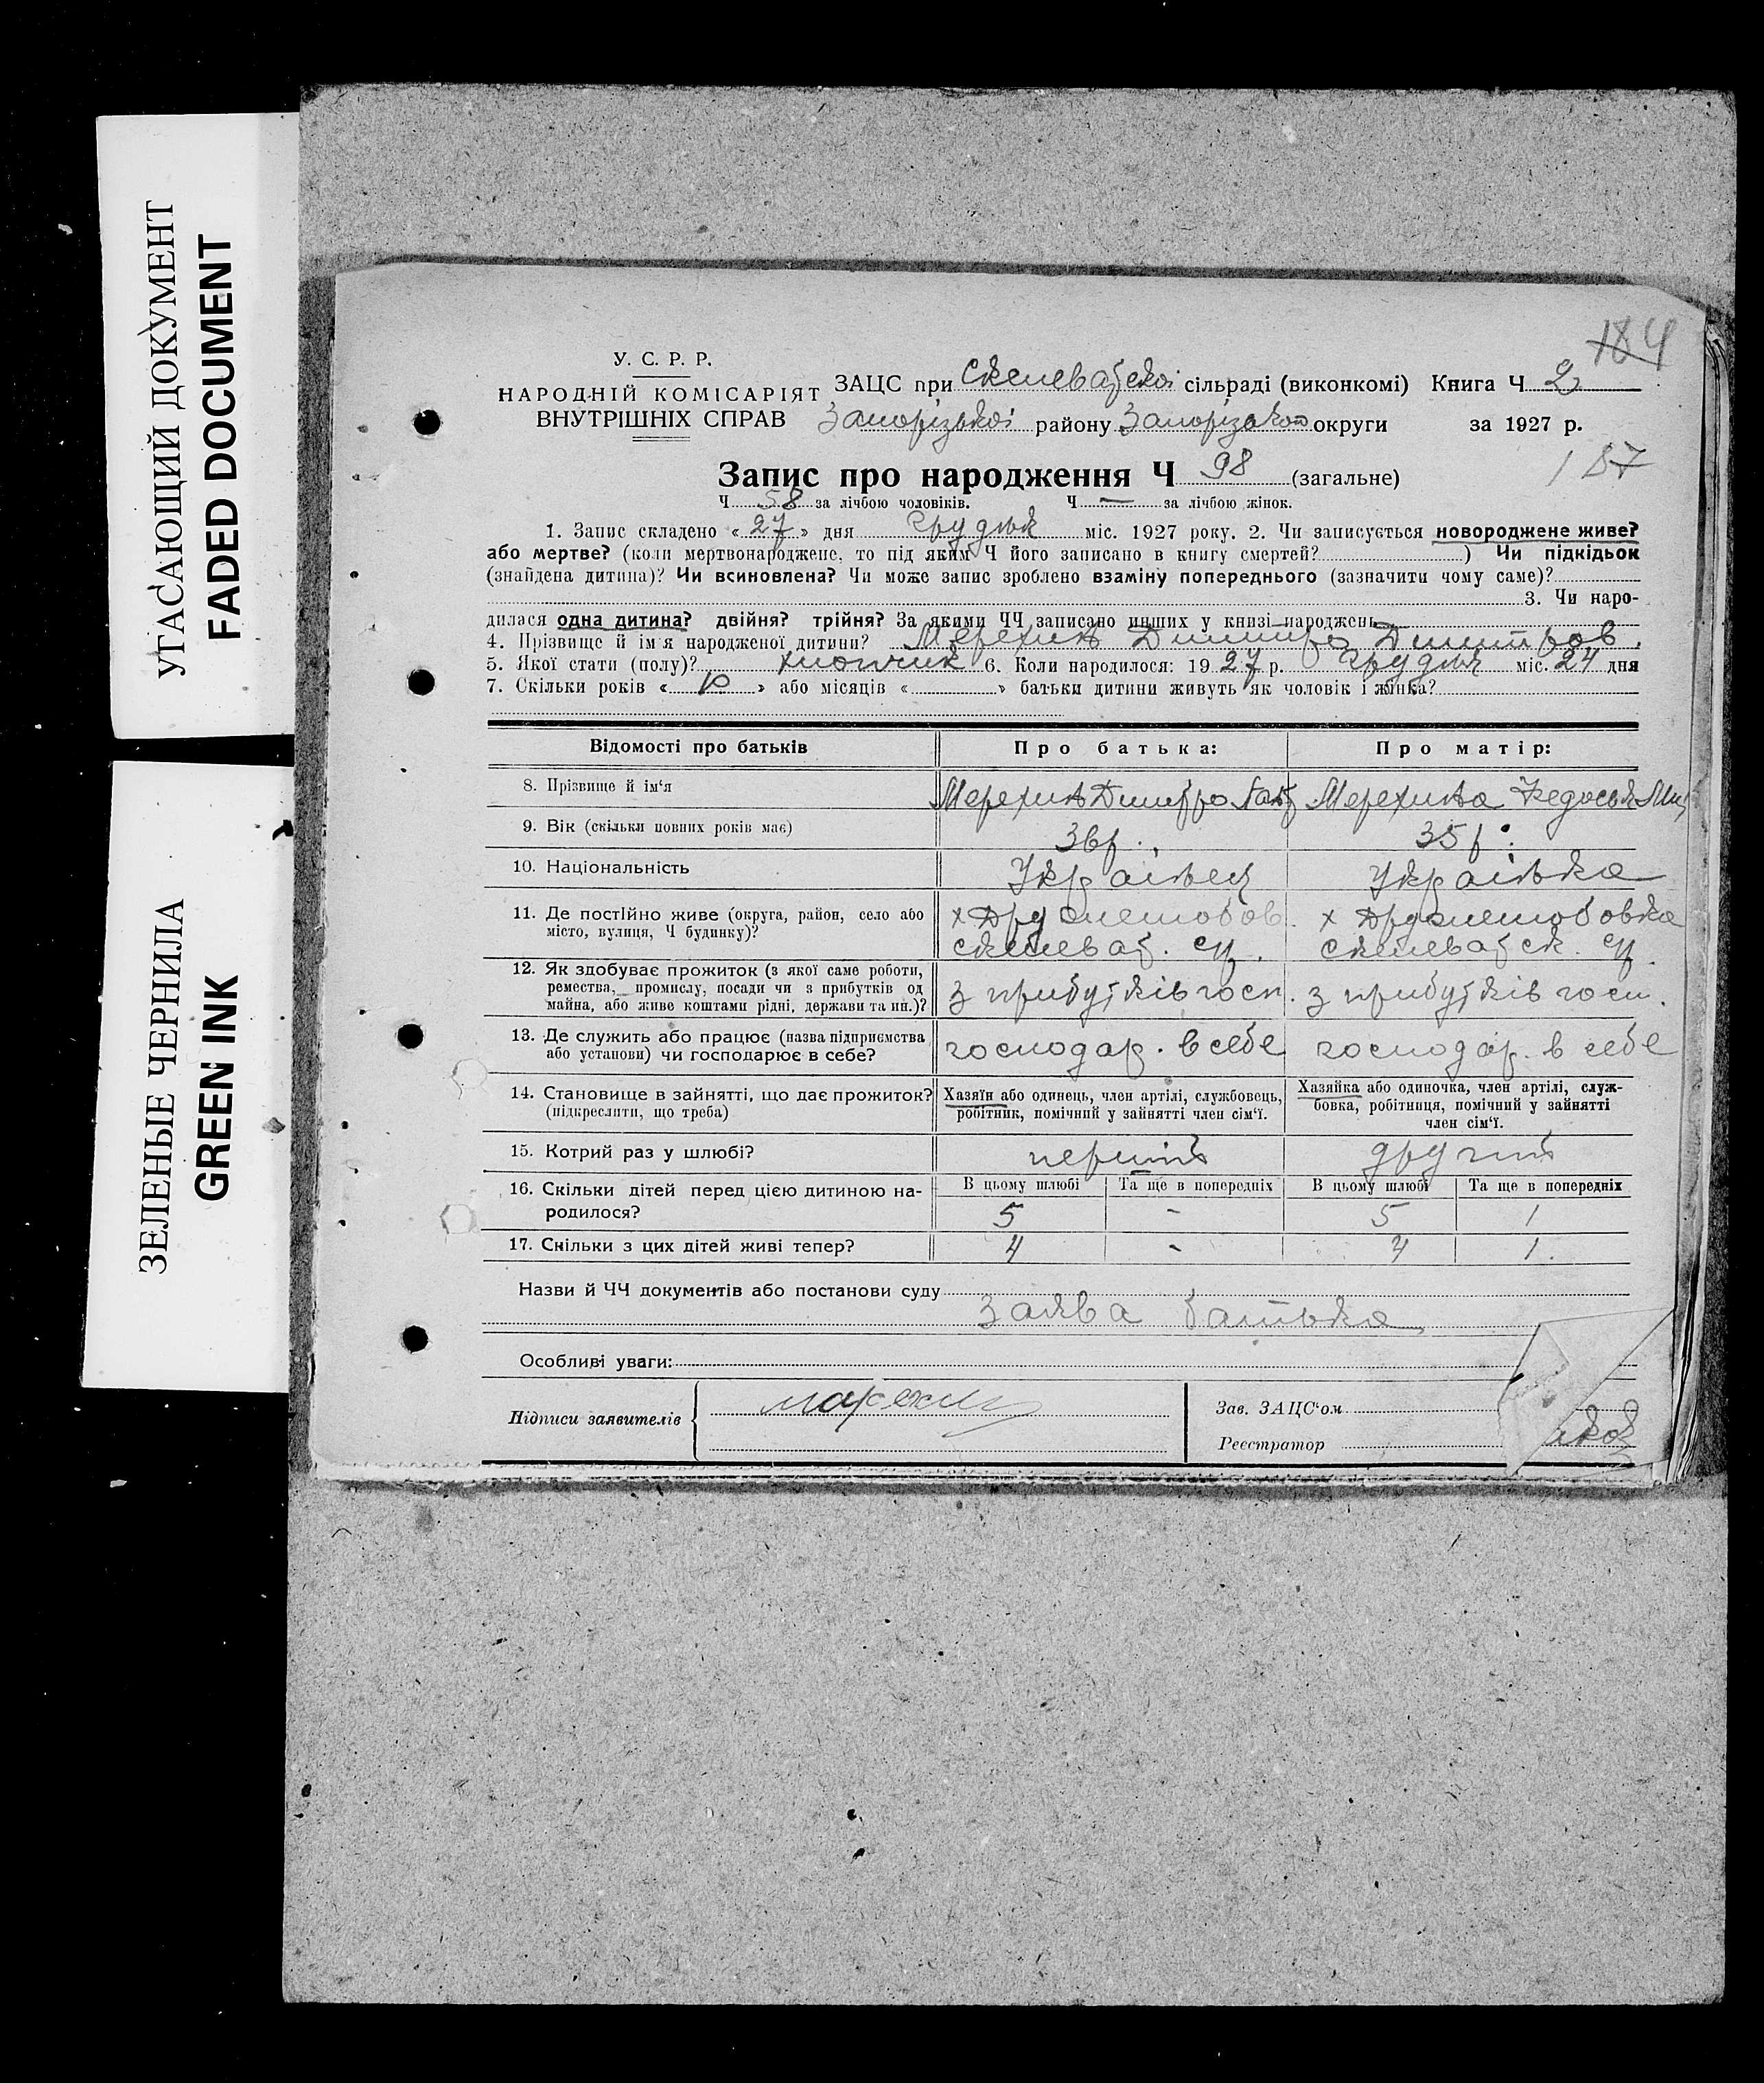 УГАСАЮЩИЙ ДОКУМЕНТ
FADED DOCUMENT
ЗЕЛЕНЫЕ ЧЕРНИЛА
GREEN INK
184
У. С. Р. Р.
НАРОДНІЙ КОМІСАРІЯТ
ВНУТРІШНІХ СПРАВ
ЗАЦС при Скелеватской сільраді (виконкомі) Книга Ч 2
Запорізької району Запорізької округи за 1927 р.
187
Запис про народження Ч 98 (загальне)
Ч 58 за лічбою чоловіків. Ч — за лічбою жінок.
1. Запис складено « 27 » дня Грудня міс. 1927 року. 2. Чи записується новороджене живе?
або мертве? (коли мертвонароджене, то під яким Ч його записано в книгу смертей? ) Чи підкідьок
(знайдена дитина)? Чи всиновлена? Чи може запис зроблено взаміну попереднього (зазначити чому саме)?
3. Чи наро-
дилася одна дитина? двійня? трійня? За якими ЧЧ записано инших у книзі народжень
4. Прізвище й ім'я народженої дитини? Мерехин Дмитро Дмитров.
5. Якої стати (полу)? хлопчик 6. Коли народилося: 1927 р. Грудня міс. 24 дня
7. Скільки років « 10 » або місяців « » батьки дитини живуть як чоловік і жінка?
Відомості про батьків Про батька: Про матір:
8. Прізвище й ім'я Мерехин Дмитро Мерехина Федосья
9. Вік (скільки повних років має) 36 р. 35 р.
10. Національність Українец Українка
11. Де постійно живе (округа, район, село або
місто, вулиця, Ч будинку)?
х Друолешобов. х Друолешобовка
скелеват. ср. скелеватск. ср.
12. Як здобуває прожиток (з якої саме роботи,
ремества, промислу, посади чи з прибутків од
майна, або живе коштами рідні, держави та ин.)?
з прибутків госп. з прибутків госп.
13. Де служить або працює (назва підприємства
або установи) чи господарює в себе?
господар. в себе господар. в себе
14. Становище в зайнятті, що дає прожиток?
(підкреслити, що треба)
Хазяїн або одинець, член артілі, службовець,
робітник, помічний у зайнятті член сім'ї.
Хазяйка або одиночка, член артілі, служ-
бовка, робітниця, помічний у зайнятті
член сім'ї.
15. Котрий раз у шлюбі? перший другий
16. Скільки дітей перед цією дитиною на-
родилося?
В цьому шлюбі Та ще в попередніх В цьому шлюбі Та ще в попередніх
5 - 5 1
17. Скільки з цих дітей живі тепер? 4 - 4 1.
Назви й ЧЧ документів або постанови суду
заява батька
Особливі уваги:
Підписи заявителів
Зав. ЗАЦС'ом
Реєстратор